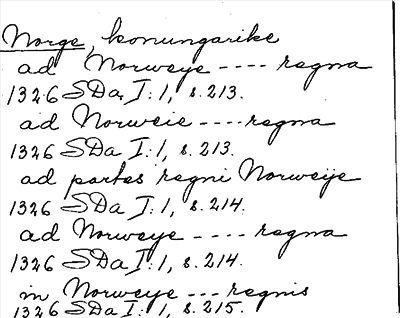 Norge, konungarike
ad Norweye ---- regna
1326 SDa I:1, s. 213.
ad Norweie ---- regna
1326 SDa I:1, s. 213.
ad partes regni Norweije
1326 SDa I:1, s. 214.
ad Norweye ---- regna
1326 SDa I:1, s. 214.
in Norweye --- regnis
1326 SDa I:1, s. 215.